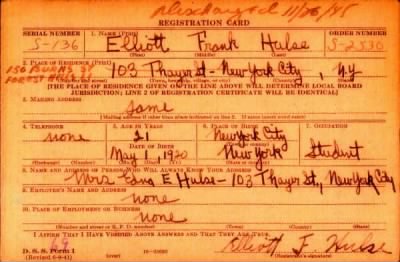 Discharged 11/26/45
REGISTRATION CARD
SERIAL NUMBER 1. NAME (Print) ORDER NUMBER
S-136 Elliott Frank Hulse S-2530
2. PLACE OF RESIDENCE (Print)
156 BURNS ST
FOREST HILLS
103 Thayer St - New York City, NY
[THE PLACE OF RESIDENCE GIVEN ON THE LINE ABOVE WILL DETERMINE LOCAL BOARD
JURISDICTION; LINE 2 OF REGISTRATION CERTIFICATE WILL BE IDENTICAL]
3. MAILING ADDRESS
Same
[Mailing address if other than place indicated on line 2. If same insert word same]
4. TELEPHONE 5. AGE IN YEARS 6. PLACE OF BIRTH 7. OCCUPATION
none 21 New York City
DATE OF BIRTH
May 1 1920 New York Student
8. NAME AND ADDRESS OF PERSON WHO WILL ALWAYS KNOW YOUR ADDRESS
Mrs. Edna E Hulse - 103 Thayer St., New York City
9. EMPLOYER'S NAME AND ADDRESS
none
10. PLACE OF EMPLOYMENT OR BUSINESS
none
I AFFIRM THAT I HAVE VERIFIED ABOVE ANSWERS AND THAT THEY ARE TRUE.
D. S. S. Form 1
(Revised 6-9-41)
Elliott F. Hulse
(Registrant's signature)